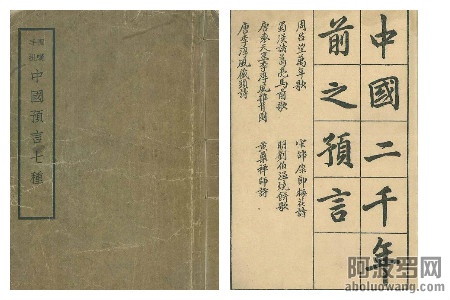 中國預言七種
中國二千年
前之預言
周呂望萬年歌
蜀漢諸葛亮馬前歌
唐袁天罡李淳風推背圖
唐李淳風藏頭詩
宋邵康節梅花詩
明劉伯溫燒餅歌
黃檗禪師詩
阿波罗网
aboluowang.com